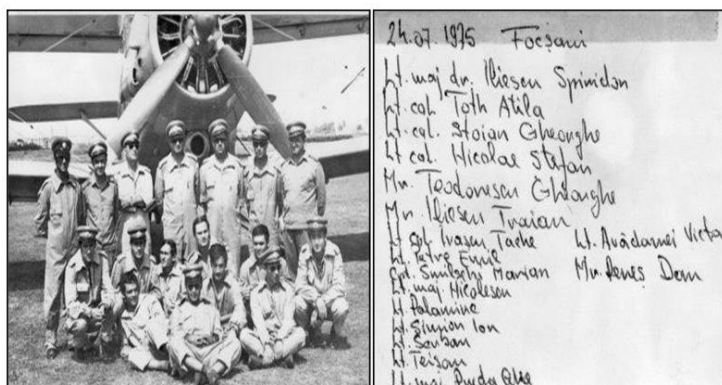 24.07.1975 Focșani
Lt. maj dr. Iliescu Spiridon
Lt. col. Toth Atila
Lt. col. Stoian Gheorghe
Lt col. Nicolae Stefan
Mr. Teodorescu Gheorghe
Mr. Iliescu Traian
Lt col. Tache Lt. Avădanei Victor
Lt. Petre Emil
Cpt. Marian Mr. Dan
Lt. maj Nicolescu
Lt. Palamine
Lt. Simion Ion
Lt. Serban
Lt. Teisan
Lt. maj